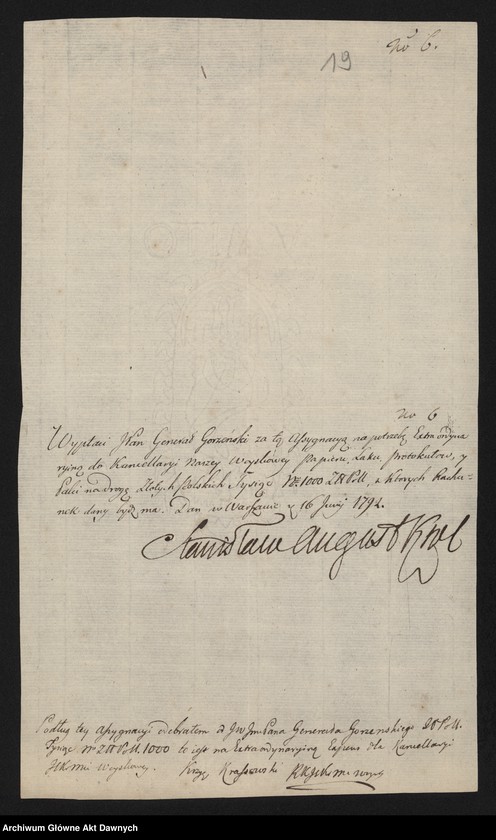 No 6.
19
No 6
Wypłaci JPan Generał Gorzeński za tą Assygnacyą na potrzebę Extraordyna
ryiną do Kancellaryi Naszey Woyskowey Papieru, Laku, Protokułow, y
na Drogę Złotych Polskich Tysiąc No 1000 z których Rachu-
nek dany bydź ma. Dan w Warszawie d 16 1792.
Stanisław August Krol
Podług tey Assygnacyi odebrałem od JW JmPana Generała Gorzenskiego
Tysiąc No 1000 to iest na Extraordynaryiną dla Kancellaryi
Woyskowey. Krasowski
Archiwum Główne Akt Dawnych